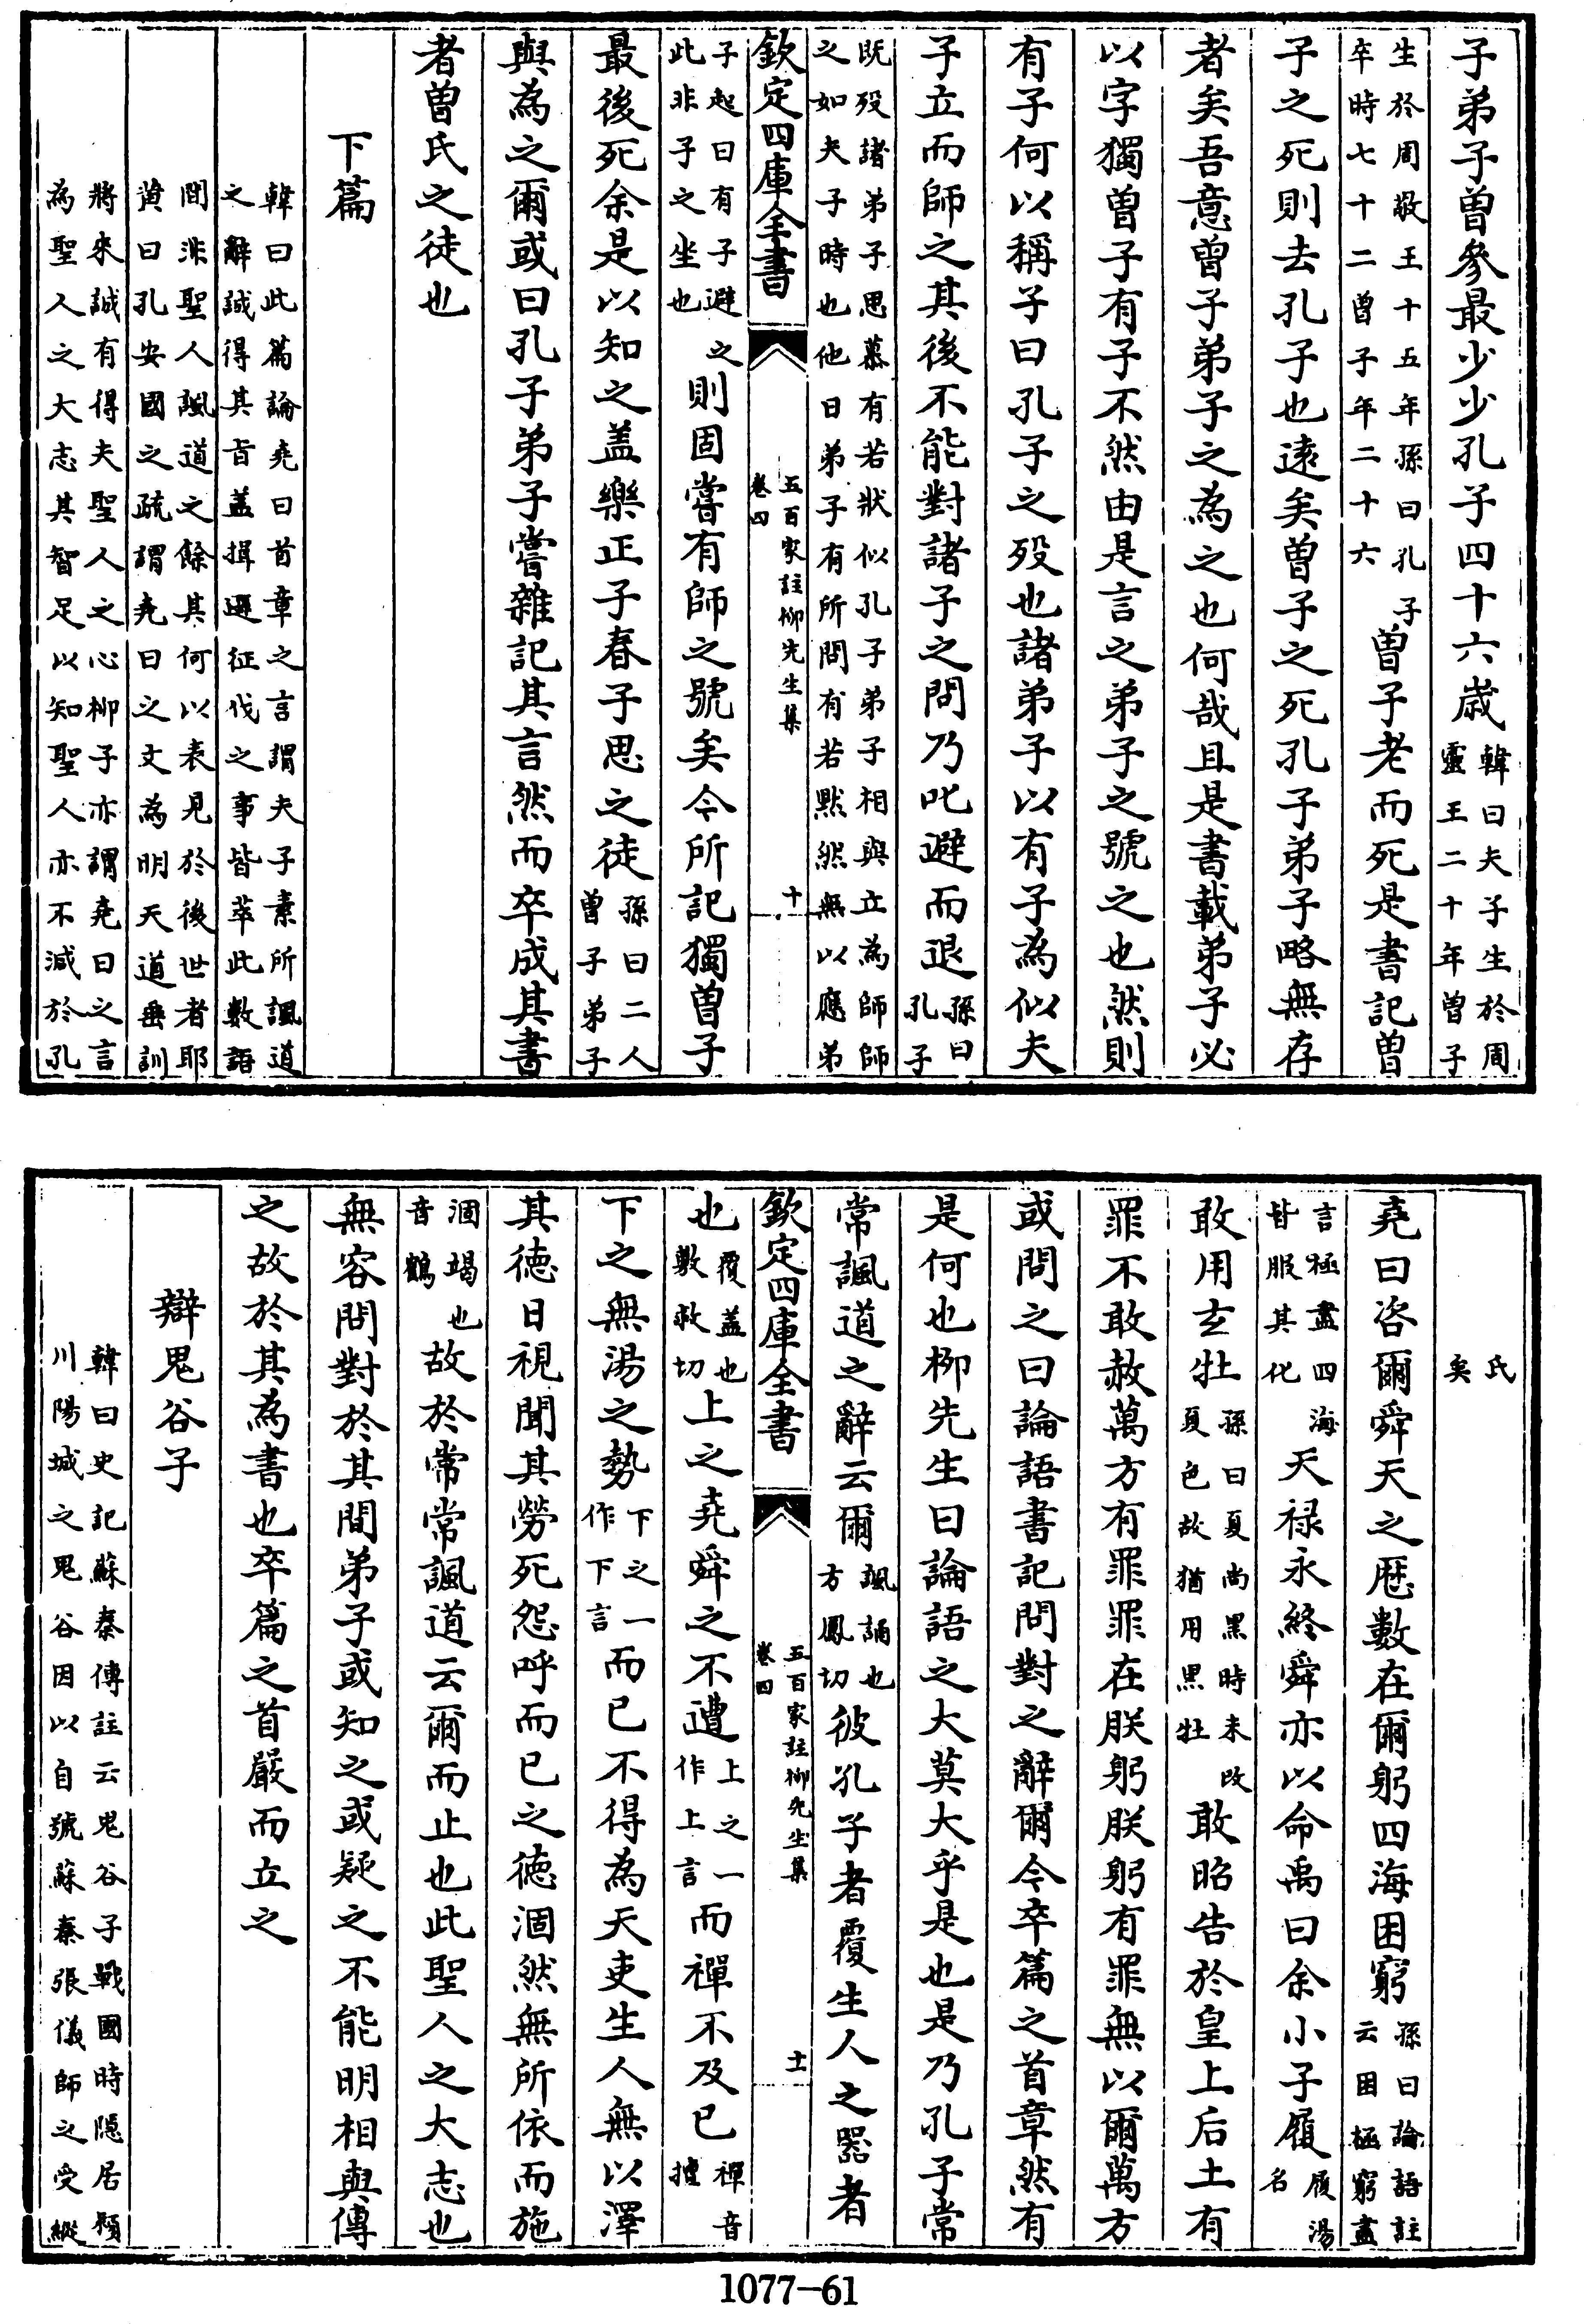 子弟子曾參最少少孔子四十六歲韓曰夫子生於周靈王二十年曾子
生於周敬王十五年孫曰孔子卒時七十二曾子年二十六曾子老而死是書記曾
子之死則去孔子也遠矣曾子之死孔子弟子略無存
者矣吾意曾子弟子之為之也何哉且是書載弟子必
以字獨曾子有子不然由是言之弟子之號之也然則
有子何以稱子曰孔子之歿也諸弟子以有子為似夫
子立而師之其後不能對諸子之問乃叱避而退孫曰孔子
既歿諸弟子思慕有若狀似孔子弟子相與立為師師之如夫子時也他日弟子有所問有若默然無以應弟
欽定四庫全書
五百家註柳先生集
卷四
十
子起曰有子避之此非子之坐也則固嘗有師之號矣今所記獨曾子
最後死余是以知之盖樂正子春子思之徒孫曰二人曾子弟子
與為之爾或曰孔子弟子嘗雜記其言然而卒成其書
者曾氏之徒也
下篇
韓曰此篇論堯曰首章之言謂夫子素所諷道之辭誠得其旨盖揖遜征伐之事皆萃此數語
間非聖人諷道之餘其何以表見於後世者耶黄曰孔安國之疏謂堯曰之文為明天道垂訓
將來誠有得夫聖人之心柳子亦謂堯曰之言為聖人之大志其智足以知聖人亦不減於孔
氏矣
堯曰咨爾舜天之厯數在爾躬四海困窮孫曰論語註云困極窮盡
言極盡四海皆服其化天禄永終舜亦以命禹曰余小子履履湯名
敢用玄牡孫曰夏尚黑時未改夏色故猶用黑牡敢昭告於皇上后土有
罪不敢赦萬方有罪罪在朕躬朕躬有罪無以爾萬方
或問之曰論語書記問對之辭爾今卒篇之首章然有
是何也柳先生曰論語之大莫大乎是也是乃孔子常
常諷道之辭云爾諷誦也方鳳切彼孔子者覆生人之器者
欽定四庫全書
五百家註柳先生集
卷四
十一
也覆盖也敷救切上之堯舜之不遭上之一作上言而禪不及已禪音擅
下之無湯之勢下之一作下言而已不得為天吏生人無以澤
其徳日視聞其勞死怨呼而已之徳涸然無所依而施
涸竭也音鶴故於常常諷道云爾而止也此聖人之大志也
無容問對於其間弟子或知之或疑之不能明相與傳
之故於其為書也卒篇之首嚴而立之
辯鬼谷子
韓曰史記蘇秦傳註云鬼谷子戰國時隱居潁川陽城之鬼谷因以自號蘇秦張儀師之受縱
1077-61